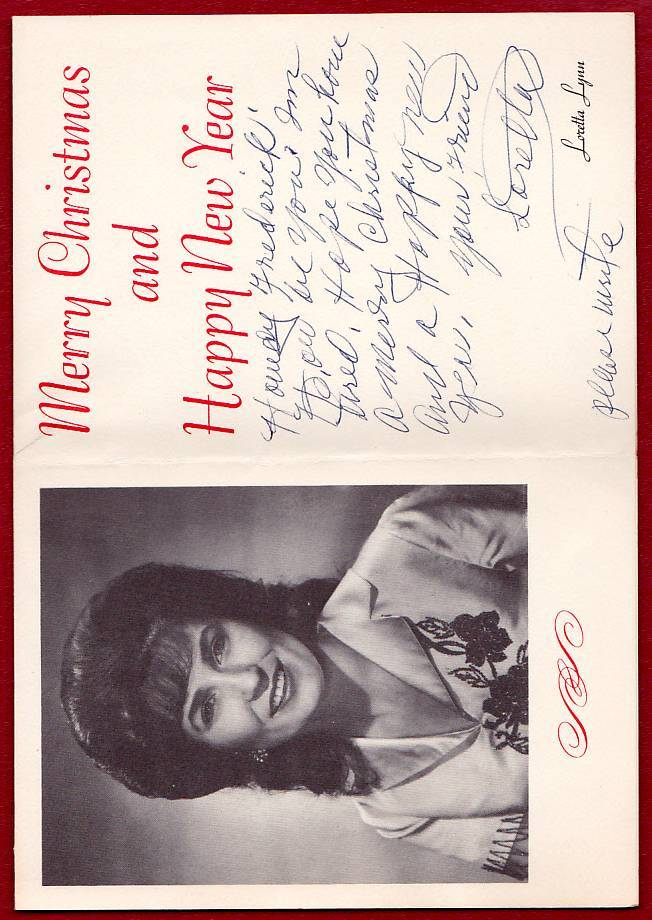 Merry Christmas
and
Happy New Year
Howdy Frederick!
How are you? Im
tired. Hope you have
a Merry Christmas
and a Happy new
Year, your Friend
Loretta
Loretta Lynn
please write